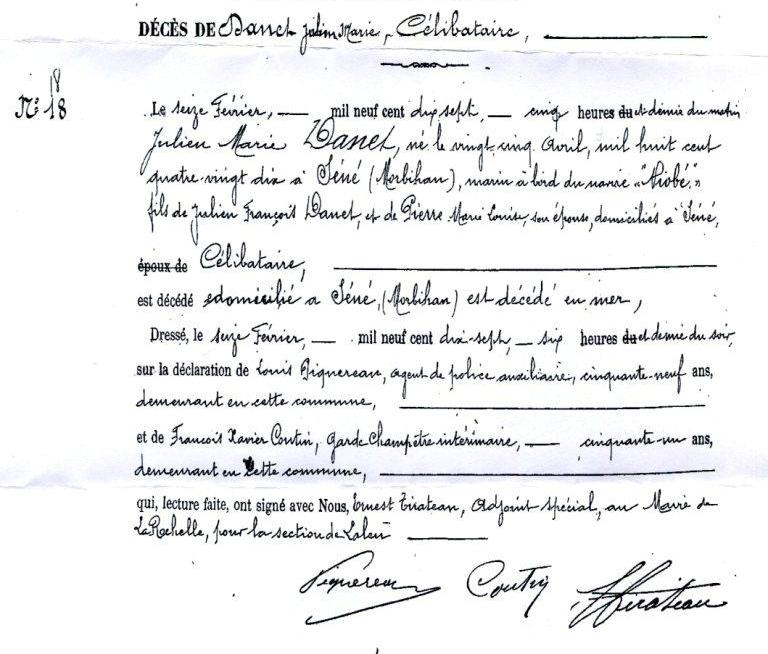 DÉCÈS DE Danet Julien Marie, Célibataire,
18
N° 18
Le seize Février, mil neuf cent dix sept, cinq heures du et demie du matin
Julien Marie Danet, né le vingt-cinq Avril, mil huit cent
quatre-vingt dix à Séné (Morbihan), marin à bord du navire "Niobé"
fils de Julien François Danet, et de Pierre Marie Louise, son épouse, domiciliés à Séné,
époux de Célibataire,
est décédé domicilié à Séné, (Morbihan) est décédé en mer,
Dressé, le seize Février, mil neuf cent dix-sept, six heures du et demie du soir,
sur la déclaration de Louis Piquereau, agent de police auxiliaire, cinquante-neuf ans,
demeurant en cette commune,
et de François Xavier Coutin, garde champêtre intérimaire, cinquante-un ans,
demeurant en cette commune,
qui, lecture faite, ont signé avec Nous, Ernest Tirateau, Adjoint spécial, au Maire de
La Rochelle, pour la section de Laleu
Piquereau Coutin Tirateau